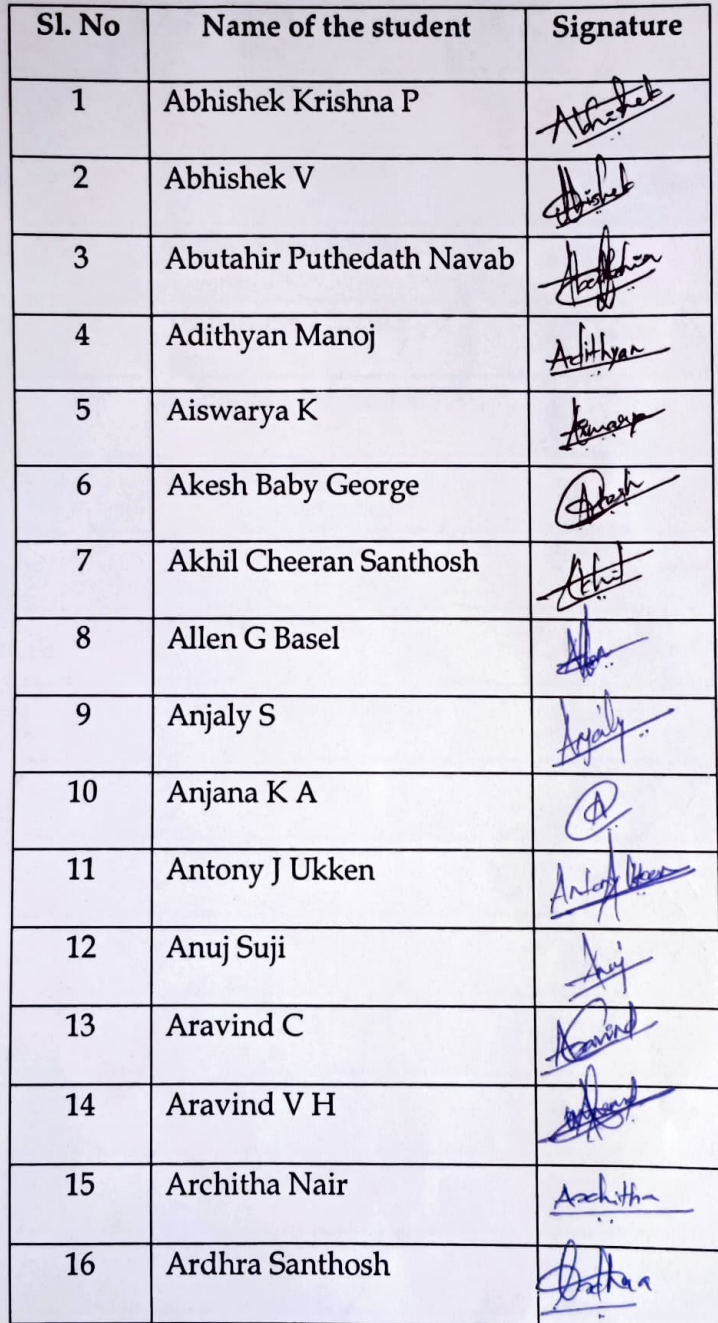 Sl. No Name of the student Signature
1 Abhishek Krishna P Abhishek
2 Abhishek V
3 Abutahir Puthedath Navab
4 Adithyan Manoj Adithyan
5 Aiswarya K
6 Akesh Baby George Akesh
7 Akhil Cheeran Santhosh Akhil
8 Allen G Basel
9 Anjaly S Anjaly
10 Anjana K A A
11 Antony J Ukken Antony Ukken
12 Anuj Suji Anuj
13 Aravind C Aravind
14 Aravind V H
15 Architha Nair Architha
16 Ardhra Santhosh